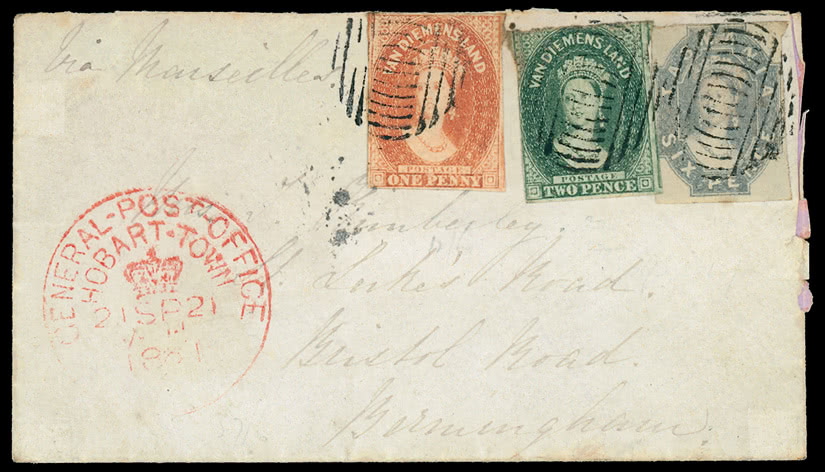 Via Marseilles
VAN DIEMENS LAND
POSTAGE
ONE PENNY
VAN DIEMENS LAND
POSTAGE
TWO PENCE
SIX PE
GENERAL-POST-OFFICE
HOBART-TOWN
21 SP 21
Road.
Bristol Road.
Birmingham.